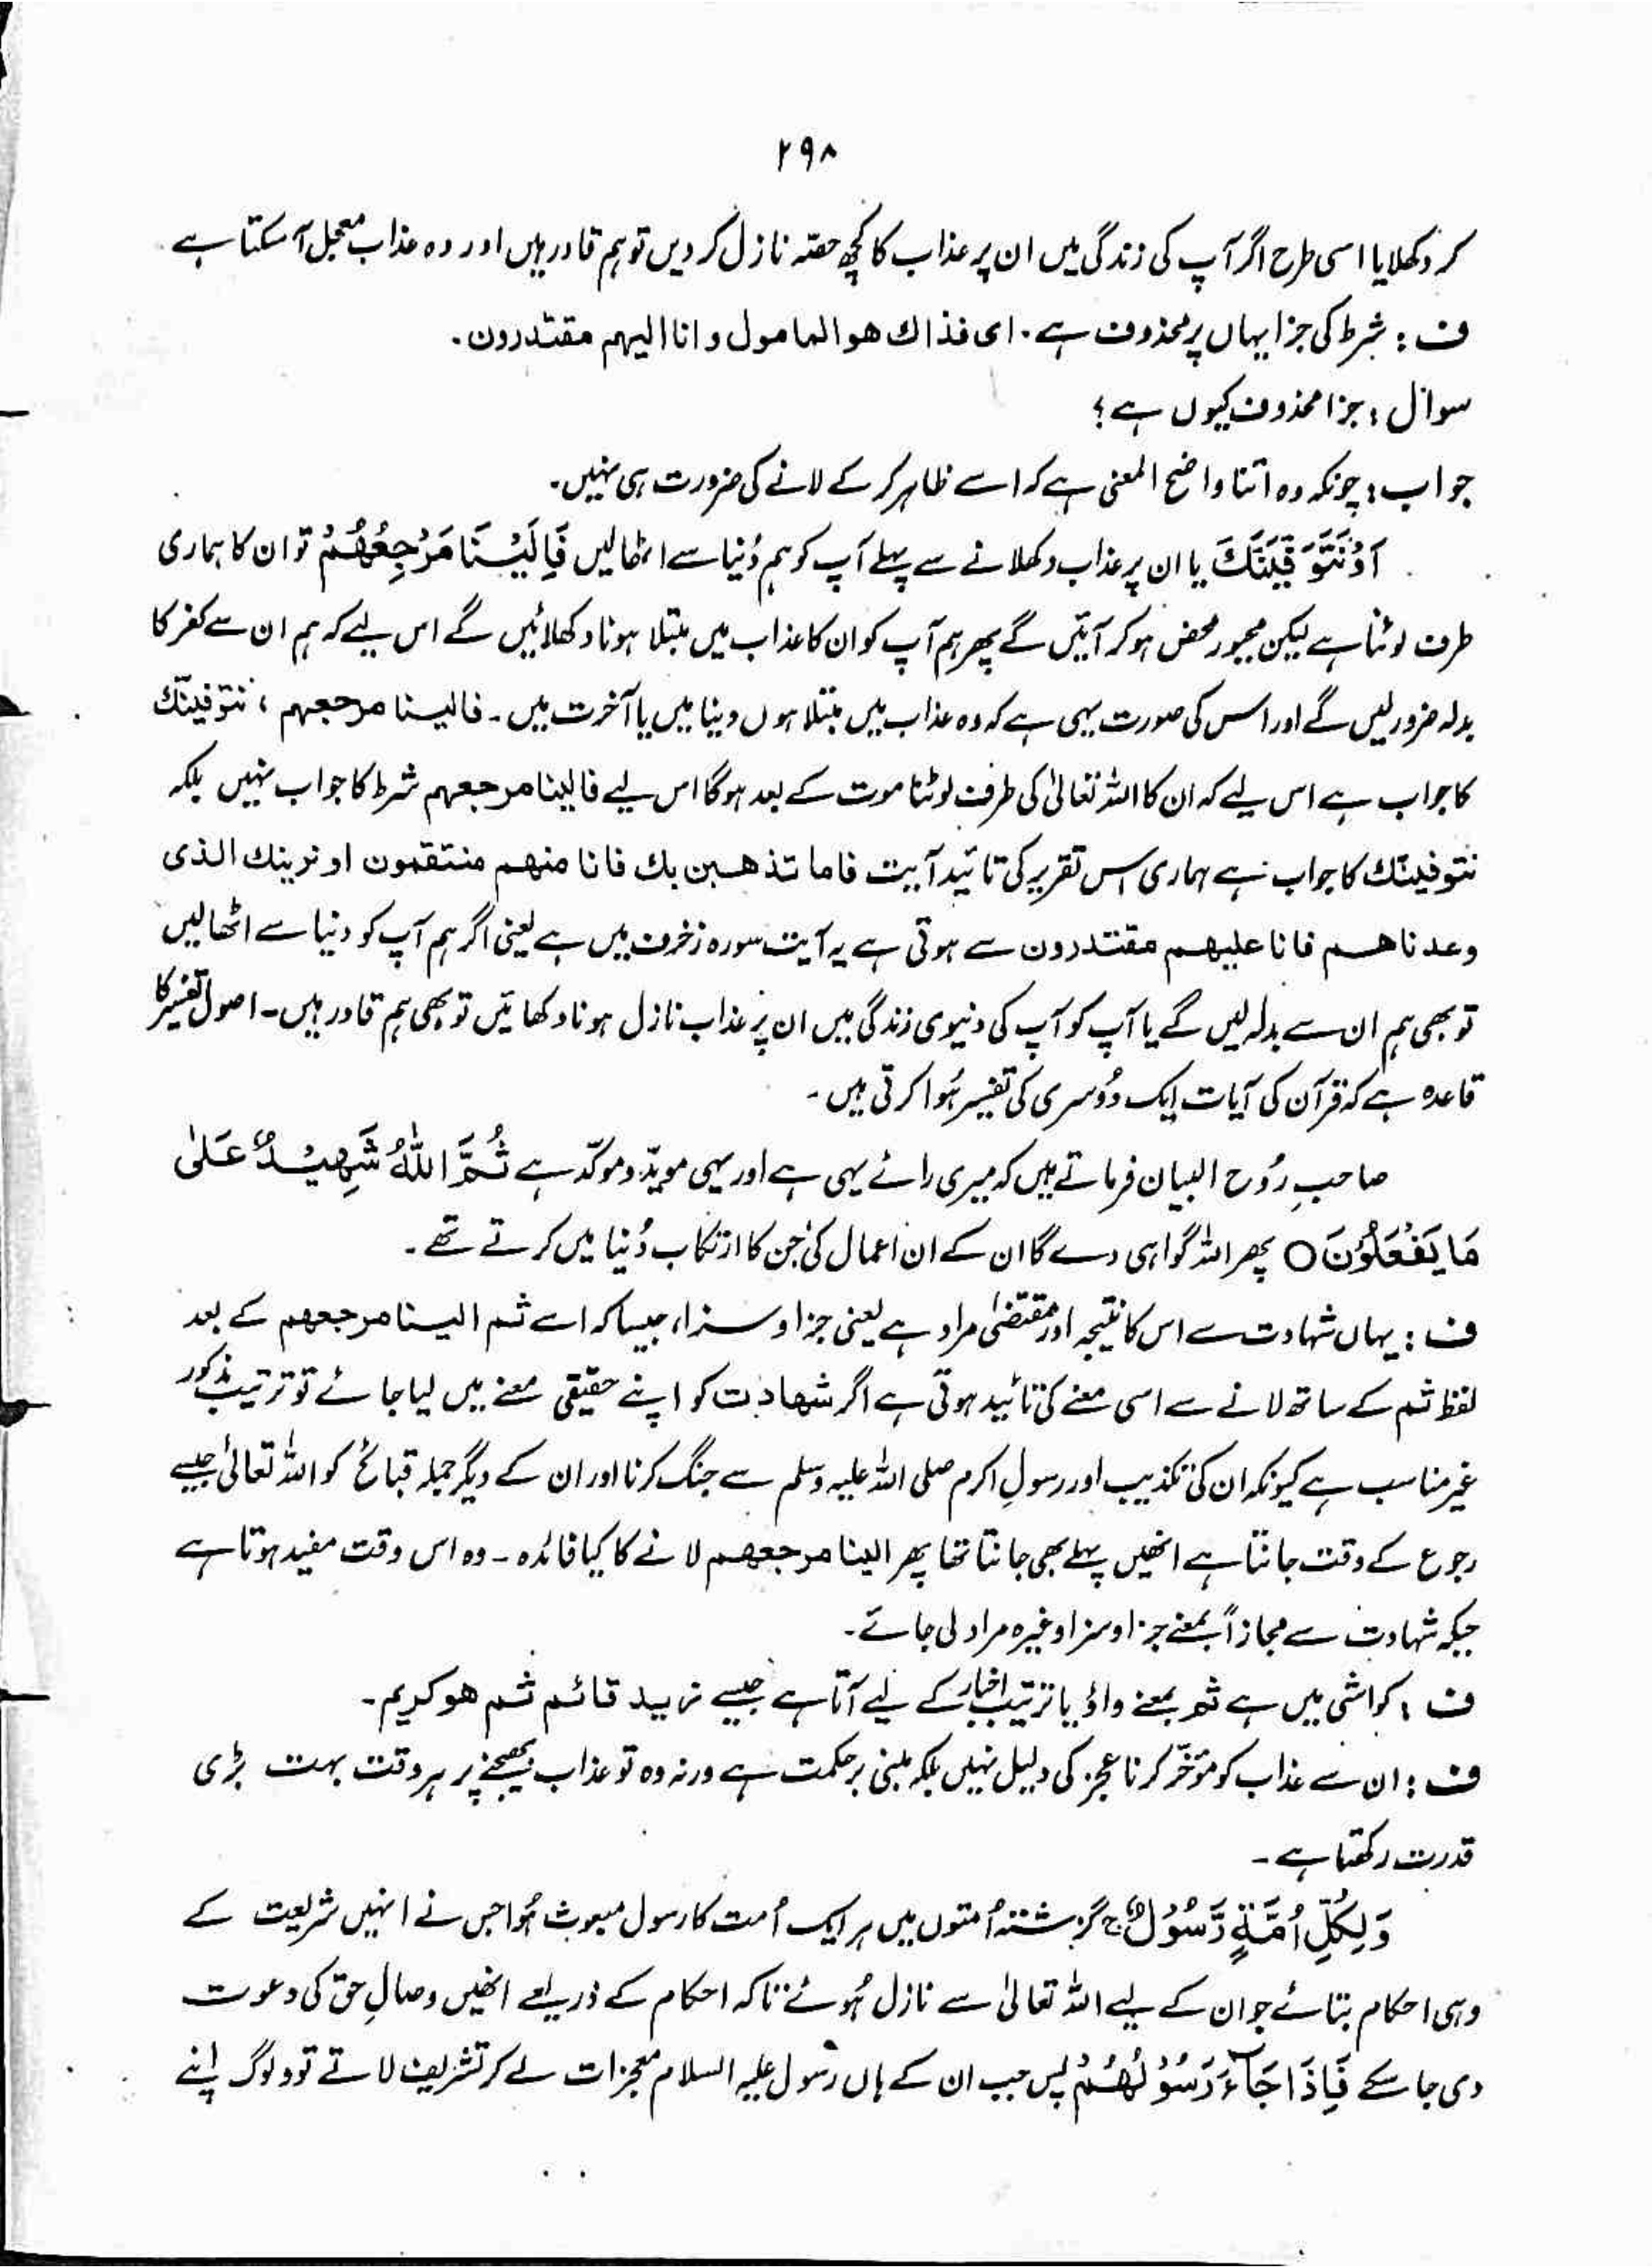 ۲۹۸
کر دکھلایا اسی طرح اگر آپ کی زندگی میں ان پر عذاب کا کچھ حصّہ نازل کر دیں تو ہم قادر ہیں اور وہ عذاب معجل آ سکتا ہے۔
ف : شرط کی جزا یہاں پر محذوف ہے۔ ای فذاك هو المامول و انا الیهم مقتدرون۔
سوال : جزا محذوف کیوں ہے ؟
جواب : چونکہ وہ اتنا واضح المعنی ہے کہ اسے ظاہر کر کے لانے کی ضرورت ہی نہیں۔
اَوْ نَتَوَفَّیَنَّكَ یا ان پر عذاب دکھلانے سے پہلے آپ کو ہم دُنیا سے اٹھا لیں فَاِلَیْنَا مَرْجِعُهُمْ تو ان کا ہماری
طرف لوٹنا ہے لیکن مجبور محض ہو کر آئیں گے پھر ہم آپ کو ان کا عذاب میں مبتلا ہونا دکھلائیں گے اس لیے کہ ہم ان سے کفر کا
بدلہ ضرور لیں گے اور اس کی صورت یہی ہے کہ وہ عذاب میں مبتلا ہوں دینا میں یا آخرت میں۔ فالینا مرجعهم ، نتوفینّك
کا جواب ہے اس لیے کہ ان کا اللہ تعالیٰ کی طرف لوٹنا موت کے بعد ہو گا اس لیے فالینا مرجعهم شرط کا جواب نہیں بلکہ
نتوفینّك کا جواب ہے ہماری اس تقریر کی تائید آیت فاما نذهبن بك فانا منهم منتقمون او نرینك الذی
وعدناهم فانا علیهم مقتدرون سے ہوتی ہے یہ آیت سورہ زخرف میں ہے یعنی اگر ہم آپ کو دنیا سے اٹھا لیں
تو بھی ہم ان سے بدلہ لیں گے یا آپ کو آپ کی دنیوی زندگی میں ان پر عذاب نازل ہونا دکھائیں تو بھی ہم قادر ہیں۔ اصول تفسیر کا
قاعدہ ہے کہ قرآن کی آیات ایک دُوسری کی تفسیر ہُوا کرتی ہیں۔
صاحبِ رُوح البیان فرماتے ہیں کہ میری رائے یہی ہے اور یہی مویدّ و موکدّ ہے ثُمَّ اللّٰهُ شَهِیْدٌ عَلٰی
مَا یَفْعَلُوْنَ ○ پھر اللہ گواہی دے گا ان کے ان اعمال کی جن کا ارتکاب دُنیا میں کرتے تھے۔
ف : یہاں شہادت سے اس کا نتیجہ اور مقتضیٰ مراد ہے یعنی جزا و سزا، جیسا کہ اسے ثم الینا مرجعهم کے بعد
لفظ ثم کے ساتھ لانے سے اسی معنے کی تائید ہوتی ہے اگر شهادت کو اپنے حقیقی معنے میں لیا جائے تو ترتیب مذکور
غیر مناسب ہے کیونکہ ان کی تکذیب اور رسولِ اکرم صلی اللہ علیہ وسلم سے جنگ کرنا اور ان کے دیگر جملہ قبائح کو اللہ تعالیٰ جیسے
رجوع کے وقت جانتا ہے انھیں پہلے بھی جانتا تھا پھر الینا مرجعهم لانے کا کیا فائدہ۔ وہ اس وقت مفید ہوتا ہے
جبکہ شہادت سے مجازاً بمعنے جزا و سزا وغیرہ مراد لی جائے۔
ف : کواشی میں ہے ثم بمعنے واؤ یا ترتیب اخبار کے لیے آتا ہے جیسے زید قائم ثم هو کریم۔
ف : ان سے عذاب کو مؤخّر کرنا عجز کی دلیل نہیں بلکہ مبنی بر حکمت ہے ورنہ وہ تو عذاب بھیجنے پر ہر وقت بہت بڑی
قدرت رکھتا ہے۔
وَلِكُلِّ اُمَّةٍ رَّسُوْلٌ ۚ گزشتہ اُمتوں میں ہر ایک اُمت کا رسول مبعوث ہُوا جس نے انہیں شریعت کے
وہی احکام بتائے جو ان کے لیے اللہ تعالیٰ سے نازل ہُوئے تاکہ احکام کے ذریعے انھیں وصالِ حق کی دعوت
دی جا سکے فَاِذَا جَآءَ رَسُوْلُهُمْ پس جب ان کے ہاں رسول علیہ السلام معجزات لے کر تشریف لاتے تو وہ لوگ اپنے